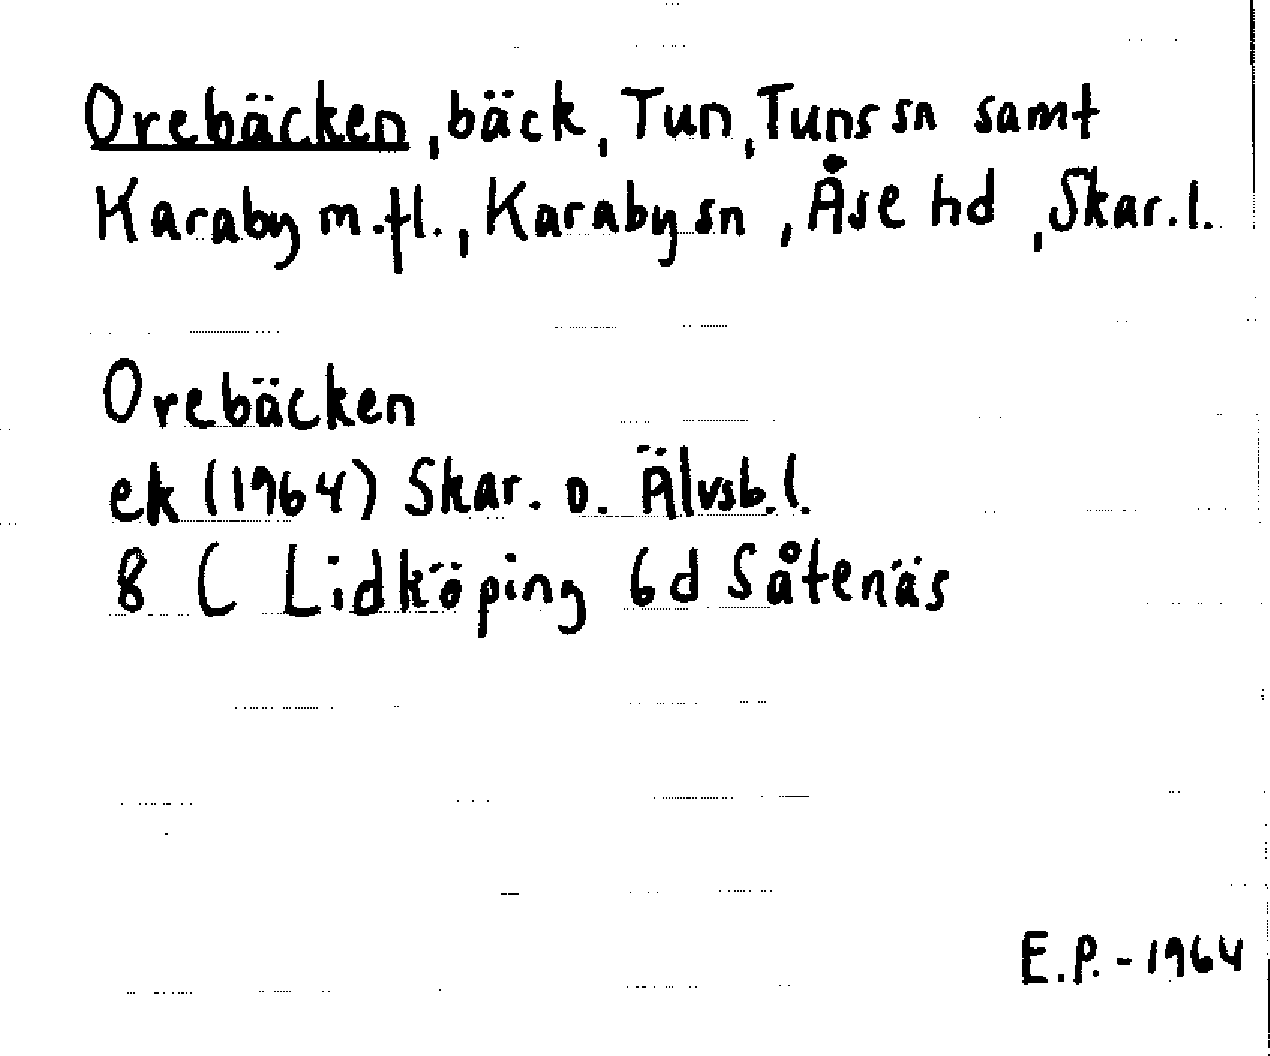 Orebäcken, bäck, Tun, Tuns sn samt
Karaby m.fl., Karaby sn, Åse hd, Skar.l.
Orebäcken
ek (1964) Skar. o. Älvsb.l.
8 C Lidköping 6d Såtenäs
E.P.-1964